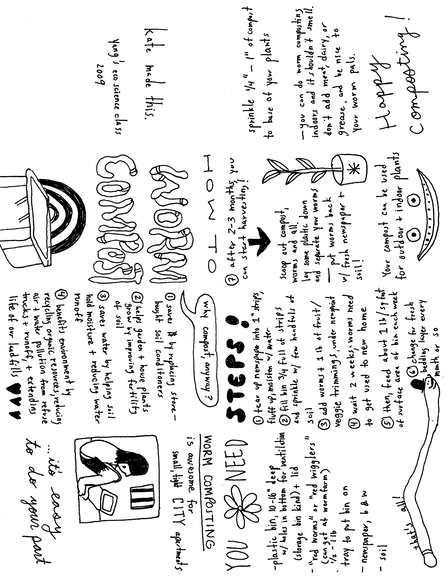 HOW TO
WORM
COMPOST
Why compost anyway?
① saves $ by replacing store-
bought soil conditioners
② helps garden + house plants
grow by improving fertility
of soil
③ saves water by helping soil
hold moisture + reducing water
runoff
④ benefits environment by
recycling organic resources, reducing
air + water pollution from refuse
trucks + runoff, + extending
life of our landfills
WORM COMPOSTING
is awesome for
small CITY apartments
... it's easy
to do your part
YOU NEED
- plastic bin, 10-16" deep
w/ holes in bottom for ventilation
(storage bin kind) + lid
- "red worms" or "red wigglers"
(can get at wormfarm)
½ - 1 lb
- tray to put bin on
- newspaper, b & w
- soil
that's all!
STEPS!
① tear up newspaper into 2" strips,
fluff up, moisten w/ water
② fill bin ¾ full of strips
and sprinkle w/ few handfuls of
soil
③ add worms + 1 lb of fruit/
veggie trimmings, under newsprint
④ wait 2 weeks: worms need
to get used to new home
⑤ then, feed about 1 lb / sq foot
of surface area of bin each week
⑥ change for fresh
bedding layer every
month or so
⑦ after 2-3 months, you
can start harvesting!
scoop out compost,
worms and all
lay some plastic down
and separate your worms
— put worms back
w/ fresh newspaper +
soil!
Your compost can be used
for outdoor + indoor plants
sprinkle ¼" - 1" of compost
to base of your plants
— you can do worm composting
indoors and it shouldn't smell.
don't add meat, dairy, or
grease, and be nice to
your worm pals.
Happy
Composting!
Kate made this.
Yang's eco science class
2009